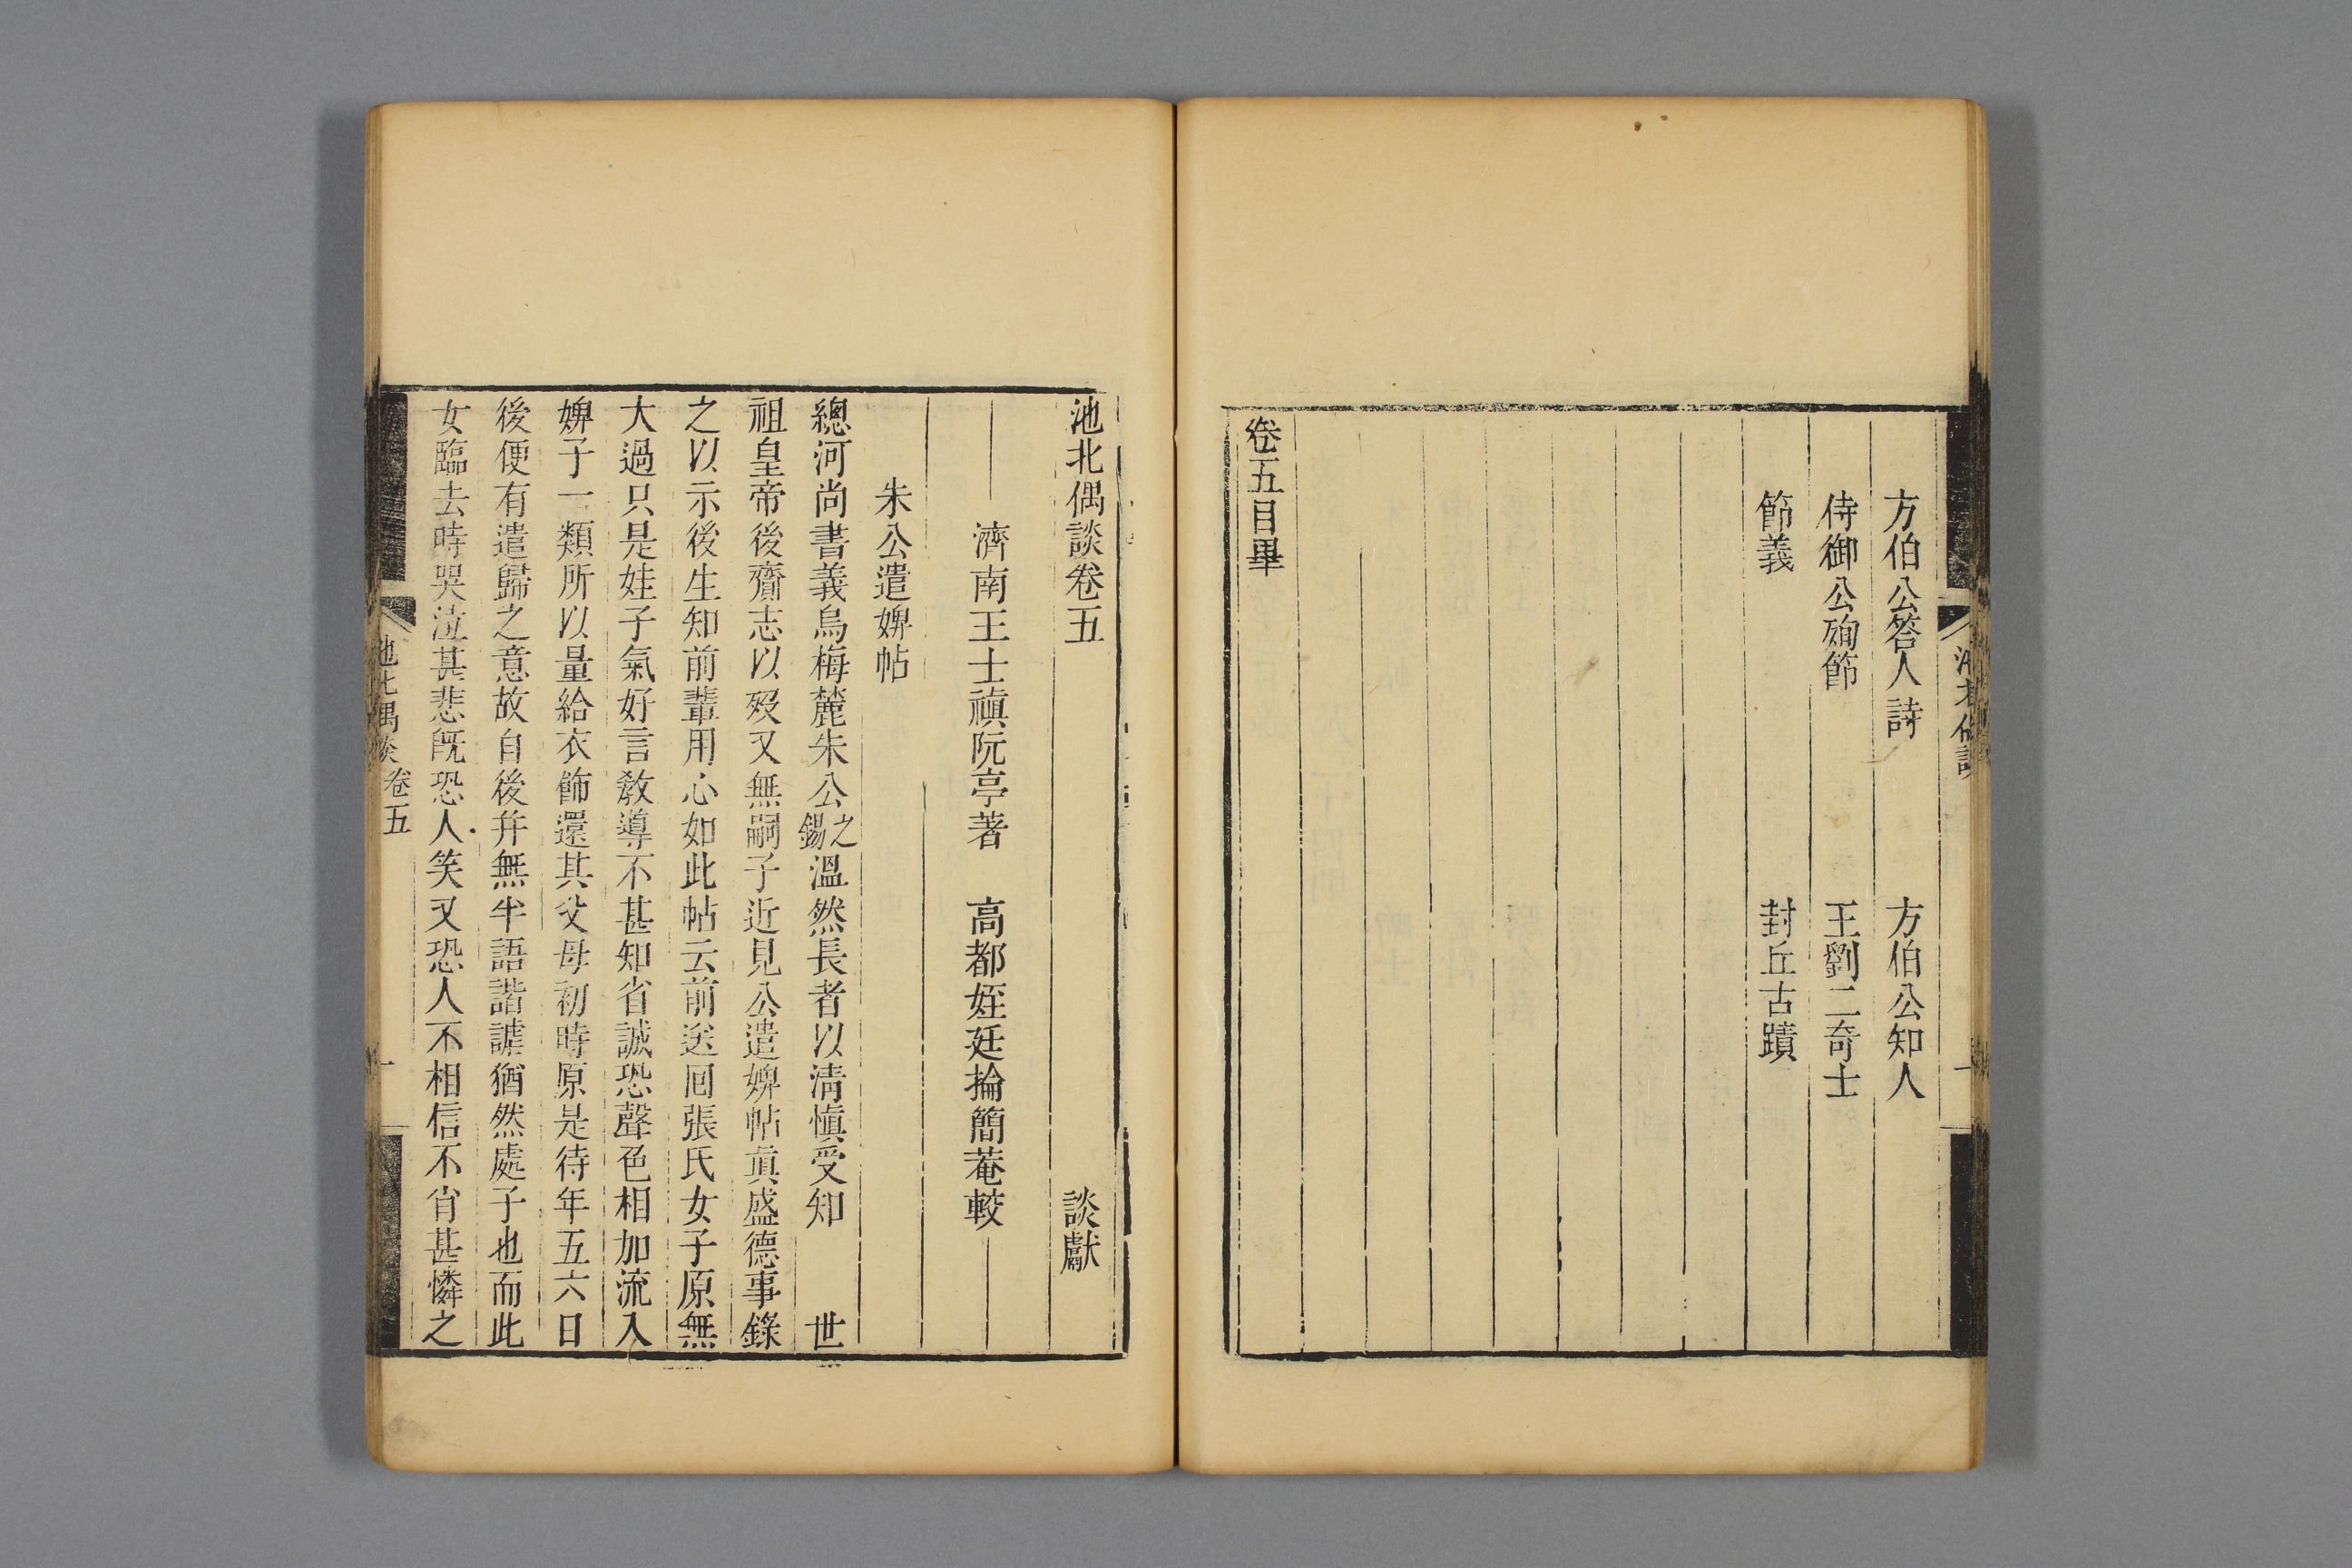 方伯公答人詩　方伯公知人
侍御公殉節　王劉二奇士
節義　封丘古蹟
卷五目畢
池北偶談卷五　談獻
濟南王士禛阮亭著　高都姪廷掄簡菴較
朱公遣婢帖
總河尚書義烏梅麓朱公之錫溫然長者以淸愼受知　世
祖皇帝後齎志以歿又無嗣子近見公遣婢帖眞盛德事錄
之以示後生知前輩用心如此帖云前送囘張氏女子原無
大過只是娃子氣好言敎導不甚知省誠恐聲色相加流入
婢子一類所以量給衣飾還其父母初時原是待年五六日
後便有遣歸之意故自後幷無半語諧謔猶然處子也而此
女臨去時哭泣甚悲旣恐人笑又恐人不相信不肯甚憐之
卷五
一